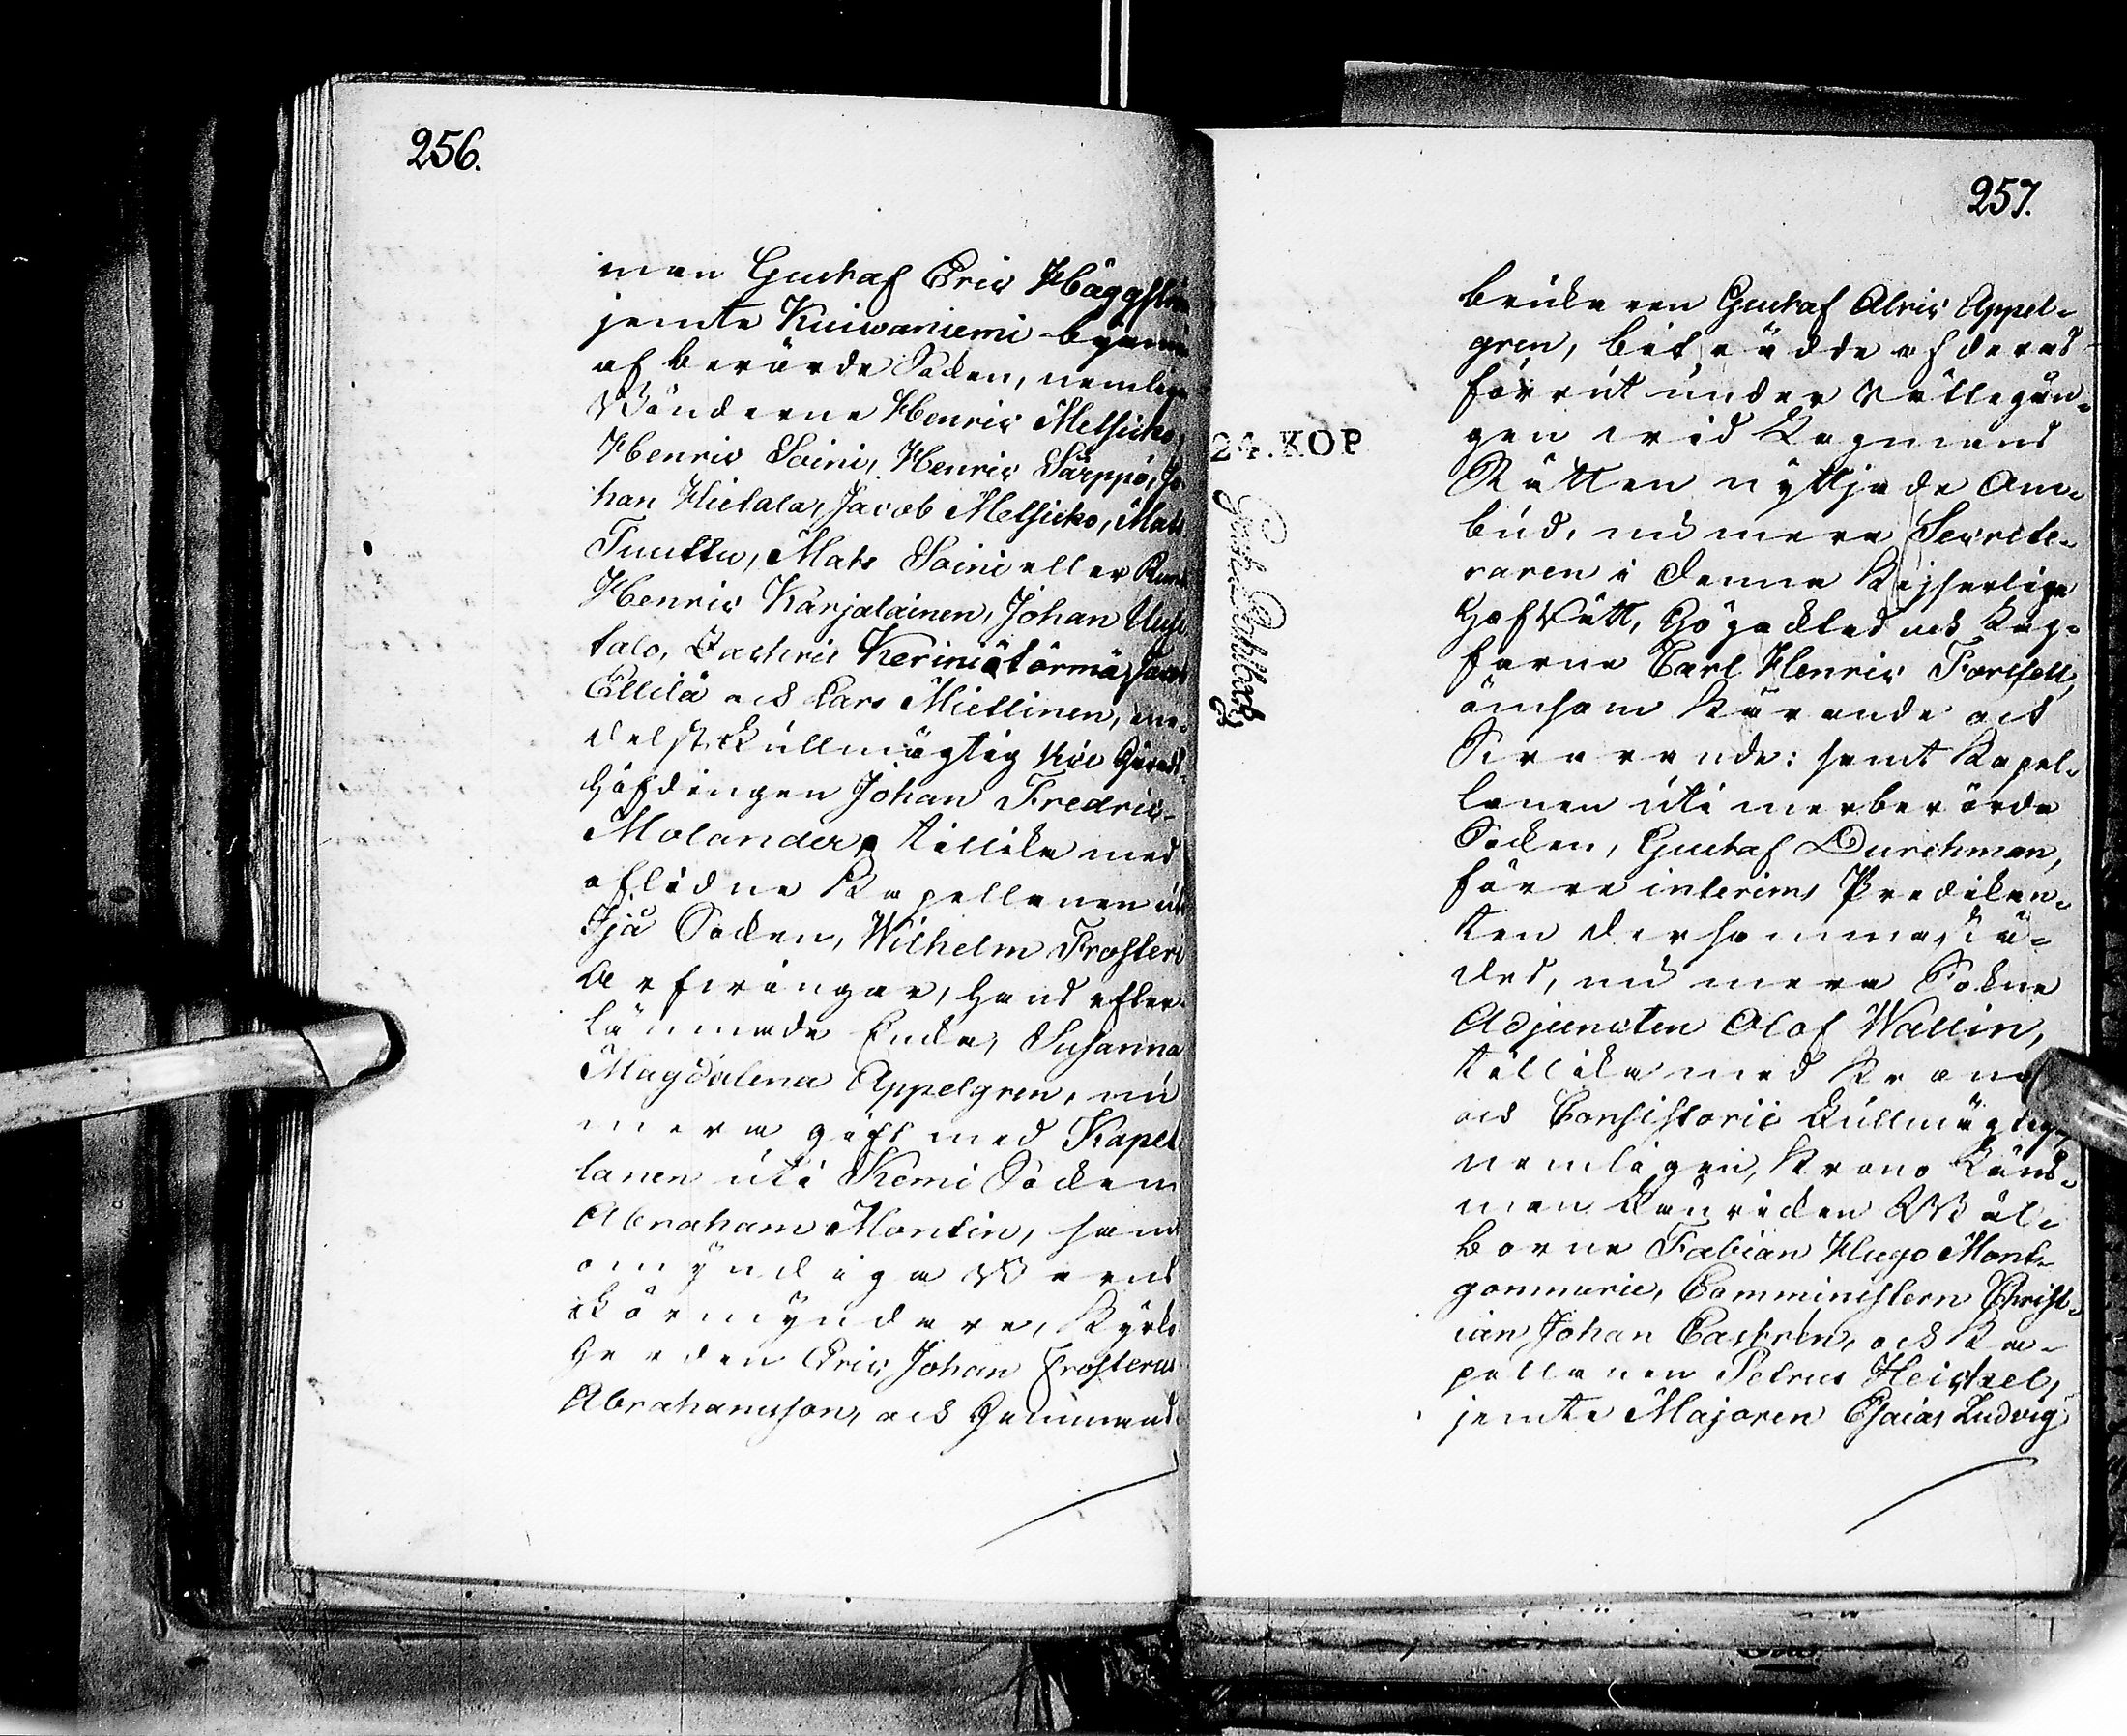 256.
man Gustaf Eric Häggstr
jemte Kuiwaniemi byamän
af berörde Socken, nemligen
Bönderne Henric Melsicko,
Henric Soini, Henric Särppö, Jo
han Hietala, Jacob Melsicko, Mats
Tuuttu, Mats Soini eller
Henric Karjalainen, Johan Uusi
talo, Zachris Keriniötörmä,
Ellilä och Lars Miettinen, me-
delst Fullmägtig Vice Härads-
höfdingen Johan Fredric
Molander, tillika med
aflidne Kapellanen uti
Ijå Socken, Wilhelm Frosteri
Arfwingar, hans efter-
lämnade Enka, Susanna
Magdalena Appelgren, nu
mera gift med Kapel
lanen uti Kemi Socken
Abraham Montin, samt
omyndiga Barns
Förmyndare, Kyrko
Herden Eric Johan Frosterus
Abrahamsson, och Hemmans
257.
24. KOP
brukaren Gustaf Alric Appel-
gren, biträdde af deras
förrut under rättegån-
gen wid Lagmans
Rätten nyttjade Om-
bud, nu mera Secrete-
raren i denna Kejserliga
HofRätt, Högädle och Lag-
farne Carl Henric Forssell,
ömsom Kärande och
Swarande: samt Kapel-
lanen uti merberörde
Socken, Gustaf Durchman,
förre interims Predikan-
ten dersammastä-
des, nu mera Sokne
Adjuncten Olof Wallin,
tillika med Krono
och Consistorii Fullmägtige
nemligen, Krono Läns-
man Läuriden Wäl-
borne Fabian Hugo Mont-
gommerie, Comministern Christ-
ian Johan Castrén, och Ka-
pellanen Petrus Heickel,
jemte Majoren Esaias Ludvig